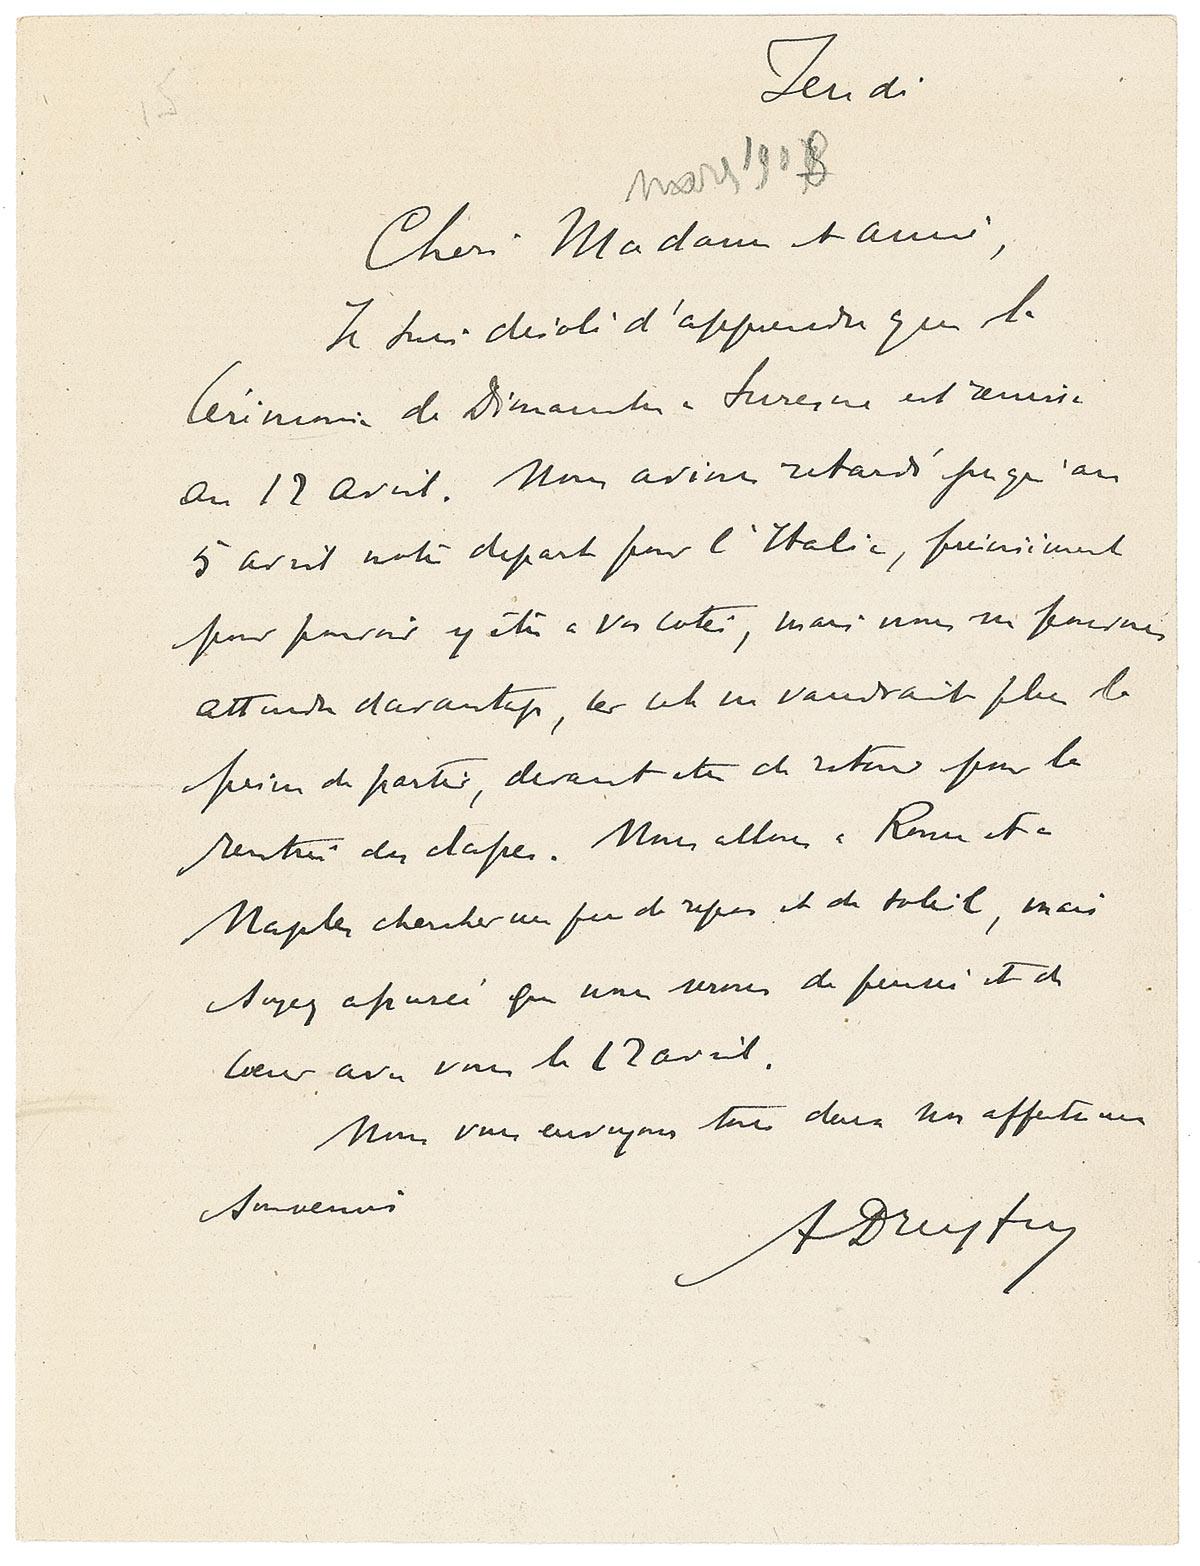 15
Jeudi
mars 1908
Chère Madame et amie,
Je suis désolé d'apprendre que la
Cérémonie de Dimanche a Suresne est remise
au 12 avril. Nous avions retardé jusqu'au
5 avril notre depart pour l'Italie, précisément
pour pouvoir y être a vos cotés, mais nous ne pouvons
attendre davantage, car cela ne vaudrait plus la
peine de partir, devant etre de retour pour la
rentrée des classes. Nous allons a Rome et a
Naples chercher un peu de repos et de soleil, mais
soyez assurée que nous serons de pensée et de
cœur avec vous le 12 avril.
Nous vous envoyons tous deux nos affectueux
souvenirs
A Dreyfus